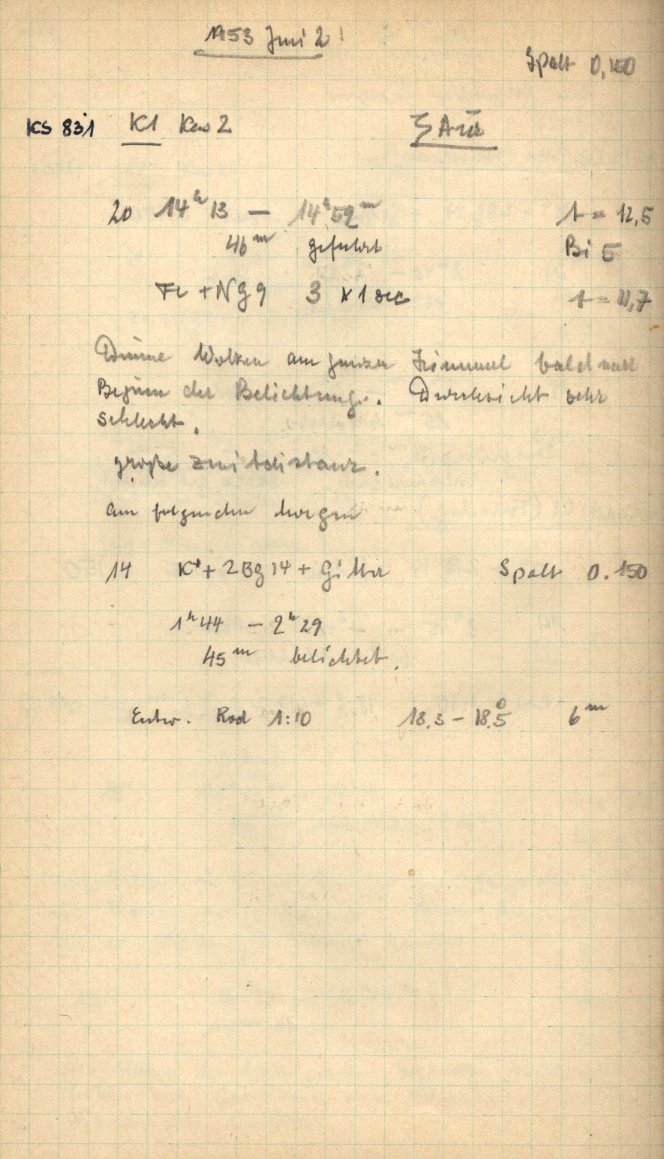 1953 Juni 2
Spalt 0,150
KS 831 K1 Kas 2 ζ Aur
20 14h 13 — 14h 59m t = 12,5
46m geführt Bi 5
Fe + Ng 9 3 x 1 sec t = 11,7
Dünne Wolken am ganzen Himmel bald nach
Beginn der Belichtung. Durchsicht sehr
schlecht.
große Zenitdistanz.
am folgenden Morgen
14 K + 2Bg 14 + Gitter Spalt 0.150
1h 44 — 2h 29
45m belichtet.
Entw. Rod 1:10 18.3 — 18.5° 6m